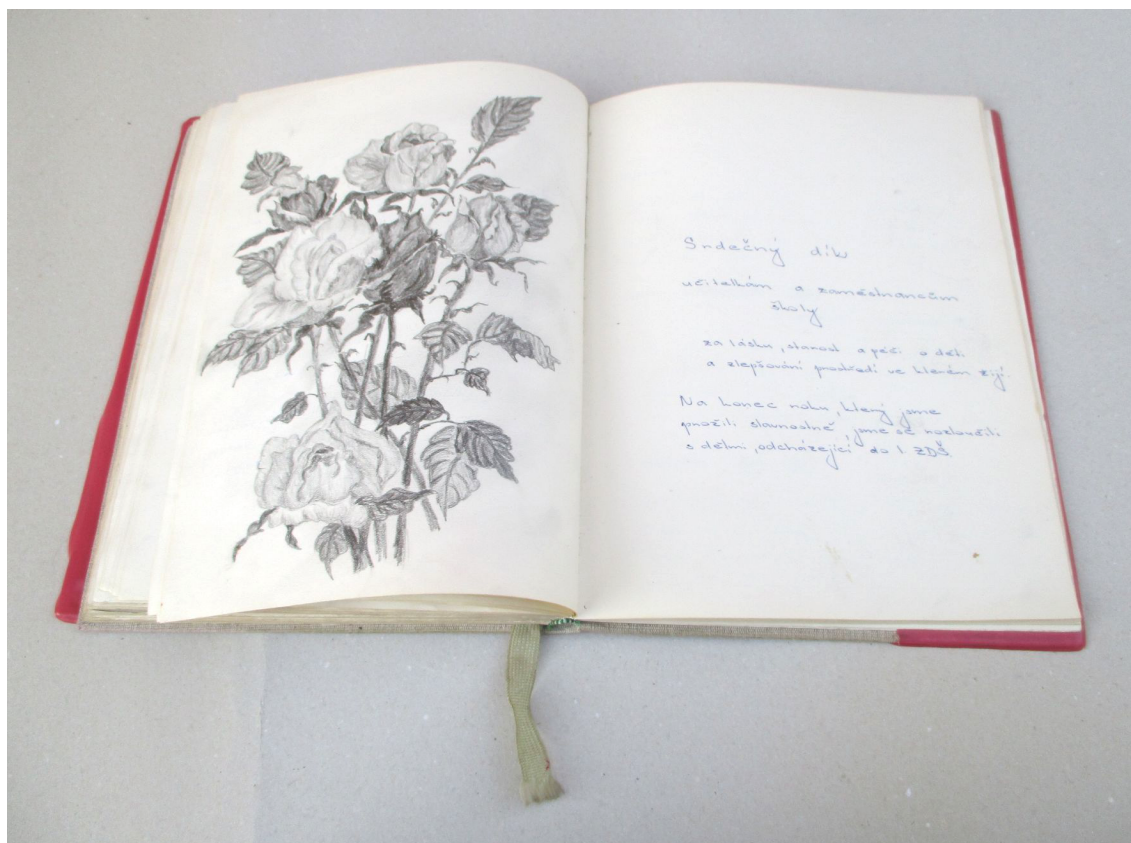 Srdečný dík
učitelkám a zaměstnancům
školy
za lásku, starost a péči o děti
a zlepšování prostředí ve kterém žijí.
Na konec roku, který jsme
prožili slavnostně jsme se rozloučili
s dětmi, odcházející do 1. ZDŠ